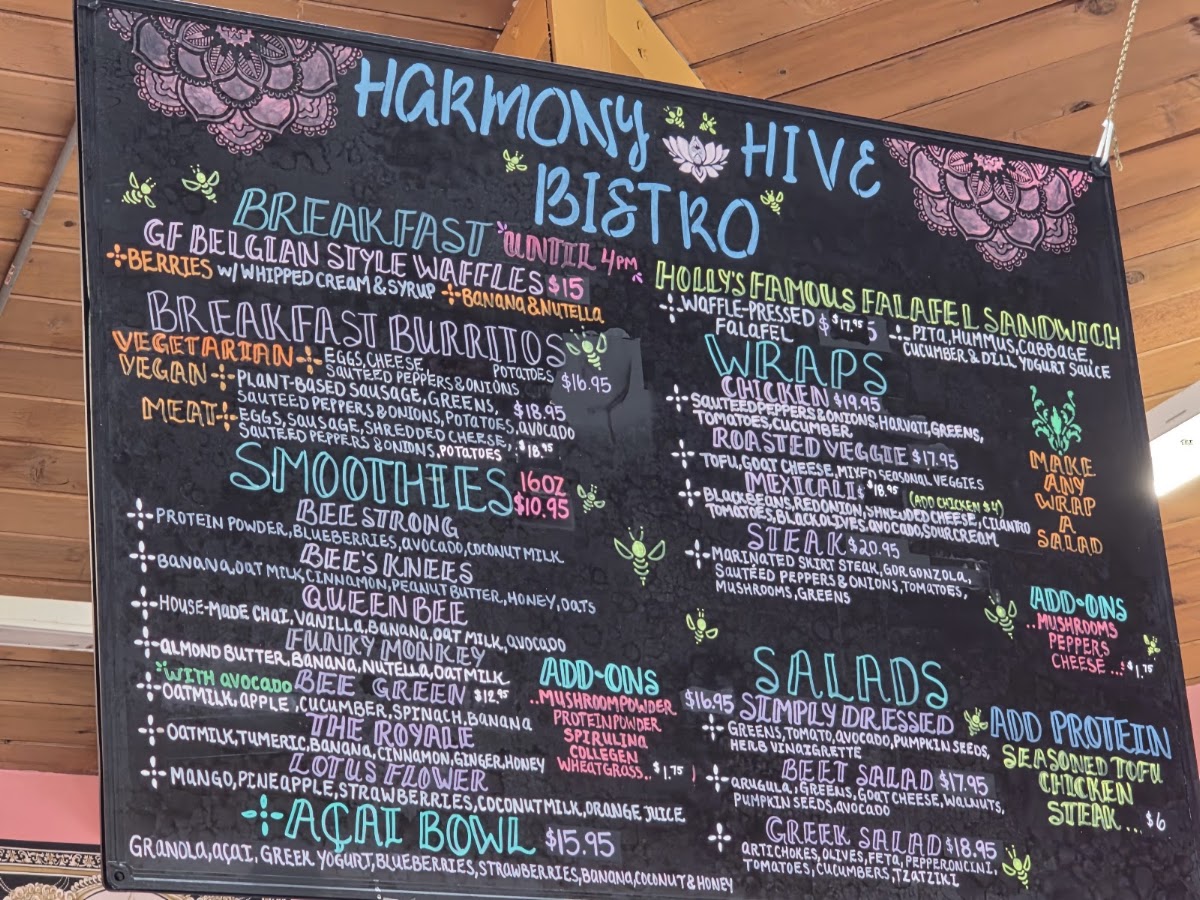 HARMONY HIVE
BISTRO
BREAKFAST UNTIL 4PM
GF BELGIAN STYLE WAFFLES $15
BERRIES W/ WHIPPED CREAM & SYRUP BANANA & NUTELLA
BREAKFAST BURRITOS
VEGETARIAN EGGS, CHEESE, POTATOES
SAUTEED PEPPERS & ONIONS $16.95
VEGAN PLANT-BASED SAUSAGE, GREENS,
SAUTEED PEPPERS & ONIONS, POTATOES, AVOCADO $18.95
MEAT EGGS, SAUSAGE, SHREDDED CHEESE,
SAUTEED PEPPERS & ONIONS, POTATOES $18.95
SMOOTHIES 16OZ
$10.95
BEE STRONG
PROTEIN POWDER, BLUEBERRIES, AVOCADO, COCONUT MILK
BEE'S KNEES
BANANA, OAT MILK, CINNAMON, PEANUT BUTTER, HONEY, OATS
QUEEN BEE
HOUSE-MADE CHAI, VANILLA, BANANA, OAT MILK, AVOCADO
FUNKY MONKEY
ALMOND BUTTER, BANANA, NUTELLA, OATMILK
WITH AVOCADO BEE GREEN $12.95
OATMILK, APPLE, CUCUMBER, SPINACH, BANANA
THE ROYALE
OATMILK, TUMERIC, BANANA, CINNAMON, GINGER, HONEY
LOTUS FLOWER
MANGO, PINEAPPLE, STRAWBERRIES, COCONUT MILK, ORANGE JUICE
ADD-ONS
..MUSHROOM POWDER
PROTEIN POWDER
SPIRULINA
COLLEGEN
WHEATGRASS.. $1.75
AÇAI BOWL $15.95
GRANOLA, AÇAI, GREEK YOGURT, BLUEBERRIES, STRAWBERRIES, BANANA, COCONUT & HONEY
HOLLY'S FAMOUS FALAFEL SANDWICH
WAFFLE-PRESSED
FALAFEL $17.95
PITA, HUMMUS, CABBAGE,
CUCUMBER & DILL YOGURT SAUCE
WRAPS
CHICKEN $19.95
SAUTEED PEPPERS & ONIONS, HARVATI, GREENS,
TOMATOES, CUCUMBER
ROASTED VEGGIE $17.95
TOFU, GOAT CHEESE, MIXED SEASONAL VEGGIES
MEXICALI $18.95 (ADD CHICKEN $4)
BLACK BEANS, RED ONION, SHREDDED CHEESE, CILANTRO
TOMATOES, BLACK OLIVES, AVOCADO, SOUR CREAM
STEAK $20.95
MARINATED SKIRT STEAK, GORGONZOLA,
SAUTÉED PEPPERS & ONIONS, TOMATOES,
MUSHROOMS, GREENS
MAKE
ANY
WRAP
A
SALAD
ADD-ONS
..MUSHROOMS
PEPPERS
CHEESE...$1.75
SALADS
$16.95 SIMPLY DRESSED
GREENS, TOMATO, AVOCADO, PUMPKIN SEEDS,
HERB VINAIGRETTE
BEET SALAD $17.95
ARUGULA, GREENS, GOAT CHEESE, WALNUTS,
PUMPKIN SEEDS, AVOCADO
GREEK SALAD $18.95
ARTICHOKES, OLIVES, FETA, PEPPERONCINI,
TOMATOES, CUCUMBERS, TZATZIKI
ADD PROTEIN
SEASONED TOFU
CHICKEN
STEAK... $6